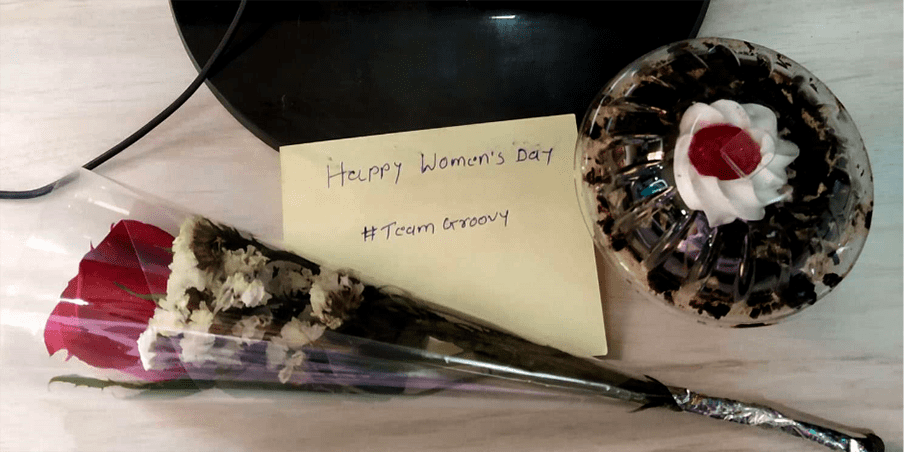 Happy Women's Day
#Team Groovy